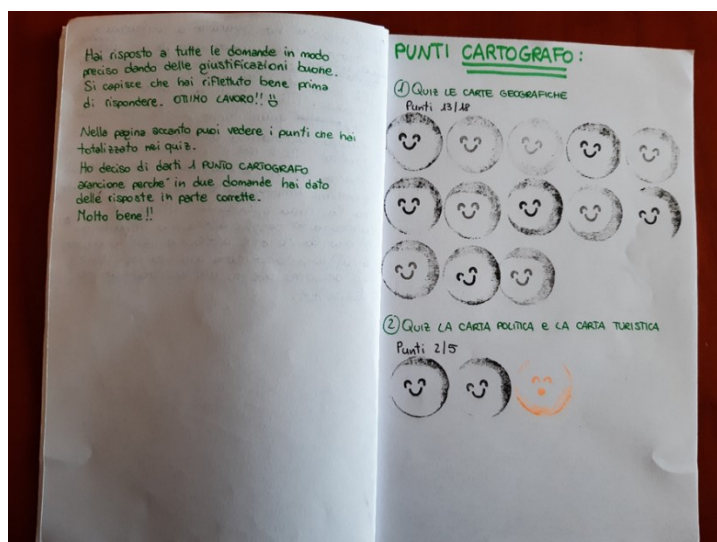 Hai risposto a tutte le domande in modo
preciso dando delle giustificazioni buone.
Si capisce che hai riflettuto bene prima
di rispondere. OTTIMO LAVORO!!
Nella pagina accanto puoi vedere i punti che hai
totalizzato nei quiz.
Ho deciso di darti 1 PUNTO CARTOGRAFO
arancione perche' in due domande hai dato
delle risposte in parte corrette.
Molto bene!!
PUNTI CARTOGRAFO:
① QUIZ LE CARTE GEOGRAFICHE
Punti 13/18
② QUIZ LA CARTA POLITICA E LA CARTA TURISTICA
Punti 2/5